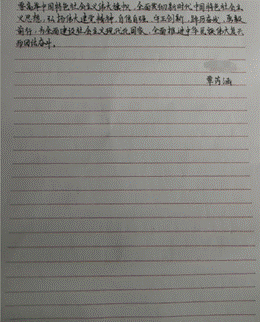 举高举中国特色社会主义伟大旗帜，全面贯彻新时代中国特色社会主
义思想，弘扬伟大建党精神，自信自强、守正创新，踔厉奋发、勇毅
前行，为全面建设社会主义现代化国家、全面推进中华民族伟大复兴
而团结奋斗。
覃芮涵